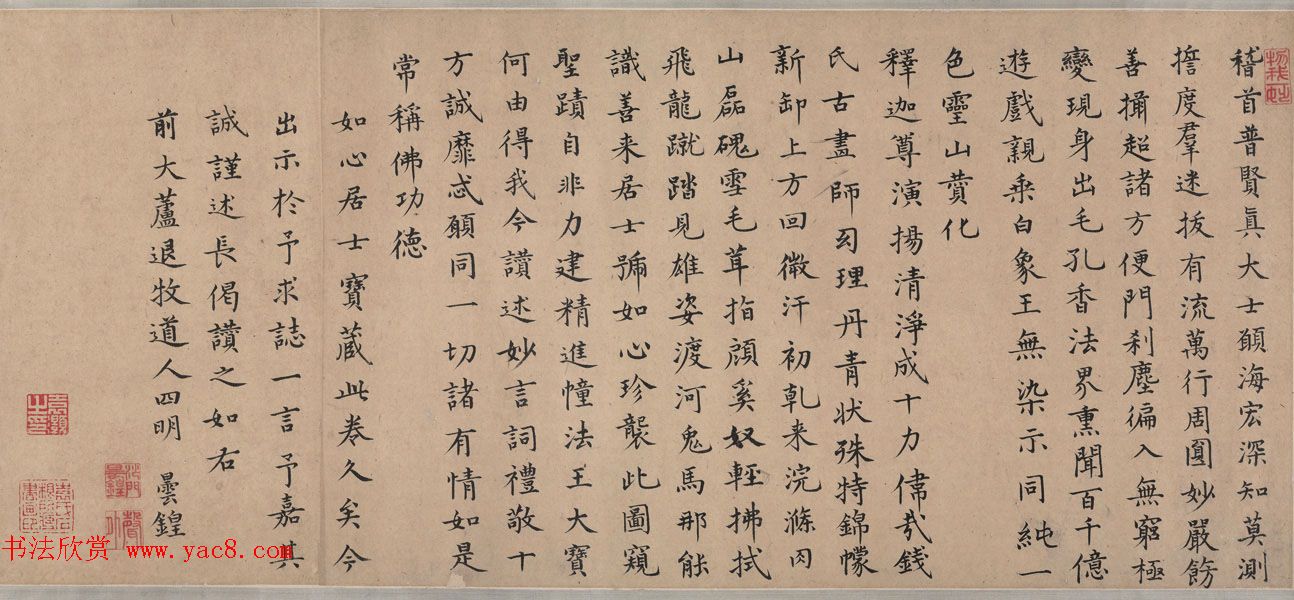 稽首普賢真大士願海宏深知莫測
誓度羣迷拔有流萬行周圓妙嚴飾
善攝超諸方便門刹塵徧入無窮極
變現身出毛孔香法界熏聞百千億
遊戲親乘白象王無染示同純一
色靈山賛化
釋迦尊演揚清淨成十力偉哉錢
氏古畫師幻理丹青狀殊特錦幪
新卸上方回微汗初乹来浣滌罔
山磊磈雪毛茸指顧奚奴輕拂拭
飛龍蹴踏見雄姿渡河兔馬那能
識善来居士號如心珍襲此圖窺
聖蹟自非力建精進幢法王大寶
何由得我今讚述妙言詞禮敬十
方誠靡忒願同一切諸有情如是
常稱佛功德
如心居士寶蔵此卷久矣今
出示於予求誌一言予嘉其
誠謹述長偈讚之如右
前大蘆退牧道人四明 曇鍠
书法欣赏 www.yac8.com